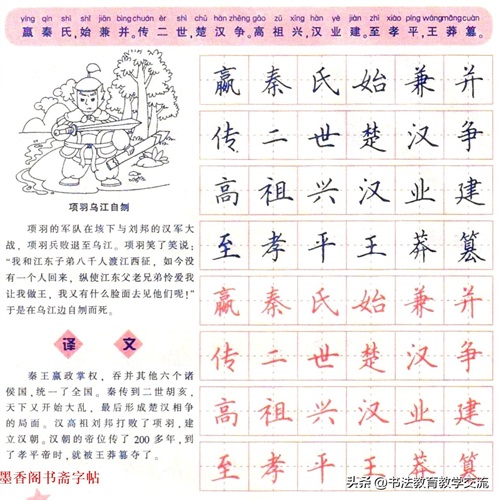 yíng qín shì shǐ jiān bìng chuán èr shì chǔ hàn zhēng gāo zǔ xīng hàn yè jiàn zhì xiào píng wáng mǎng cuàn
嬴秦氏,始兼并。传二世,楚汉争。高祖兴,汉业建。至孝平,王莽篡。
项羽乌江自刎
项羽的军队在垓下与刘邦的汉军大
战,项羽兵败退至乌江。项羽笑了笑说:
“我和江东子弟八千人渡江西征,如今没
有一个人回来,纵使江东父老兄弟怜爱我
让我做王,我又有什么脸面去见他们呢!”
于是在乌江边自刎而死。
译 文
秦王嬴政掌权,吞并其他六个诸
侯国,统一了全国。秦传到二世胡亥,
天下又开始大乱,最后形成楚汉相争
的局面。汉高祖刘邦打败了项羽,建
立汉朝。汉朝的帝位传了 200 多年,到
了孝平帝时,就被王莽篡夺了。
嬴 秦 氏 始 兼 并
传 二 世 楚 汉 争
高 祖 兴 汉 业 建
至 孝 平 王 莽 篡
嬴 秦 氏 始 兼 并
传 二 世 楚 汉 争
高 祖 兴 汉 业 建
至 孝 平 王 莽 篡
墨香阁书斋字帖
头条 @书法教育教学交流